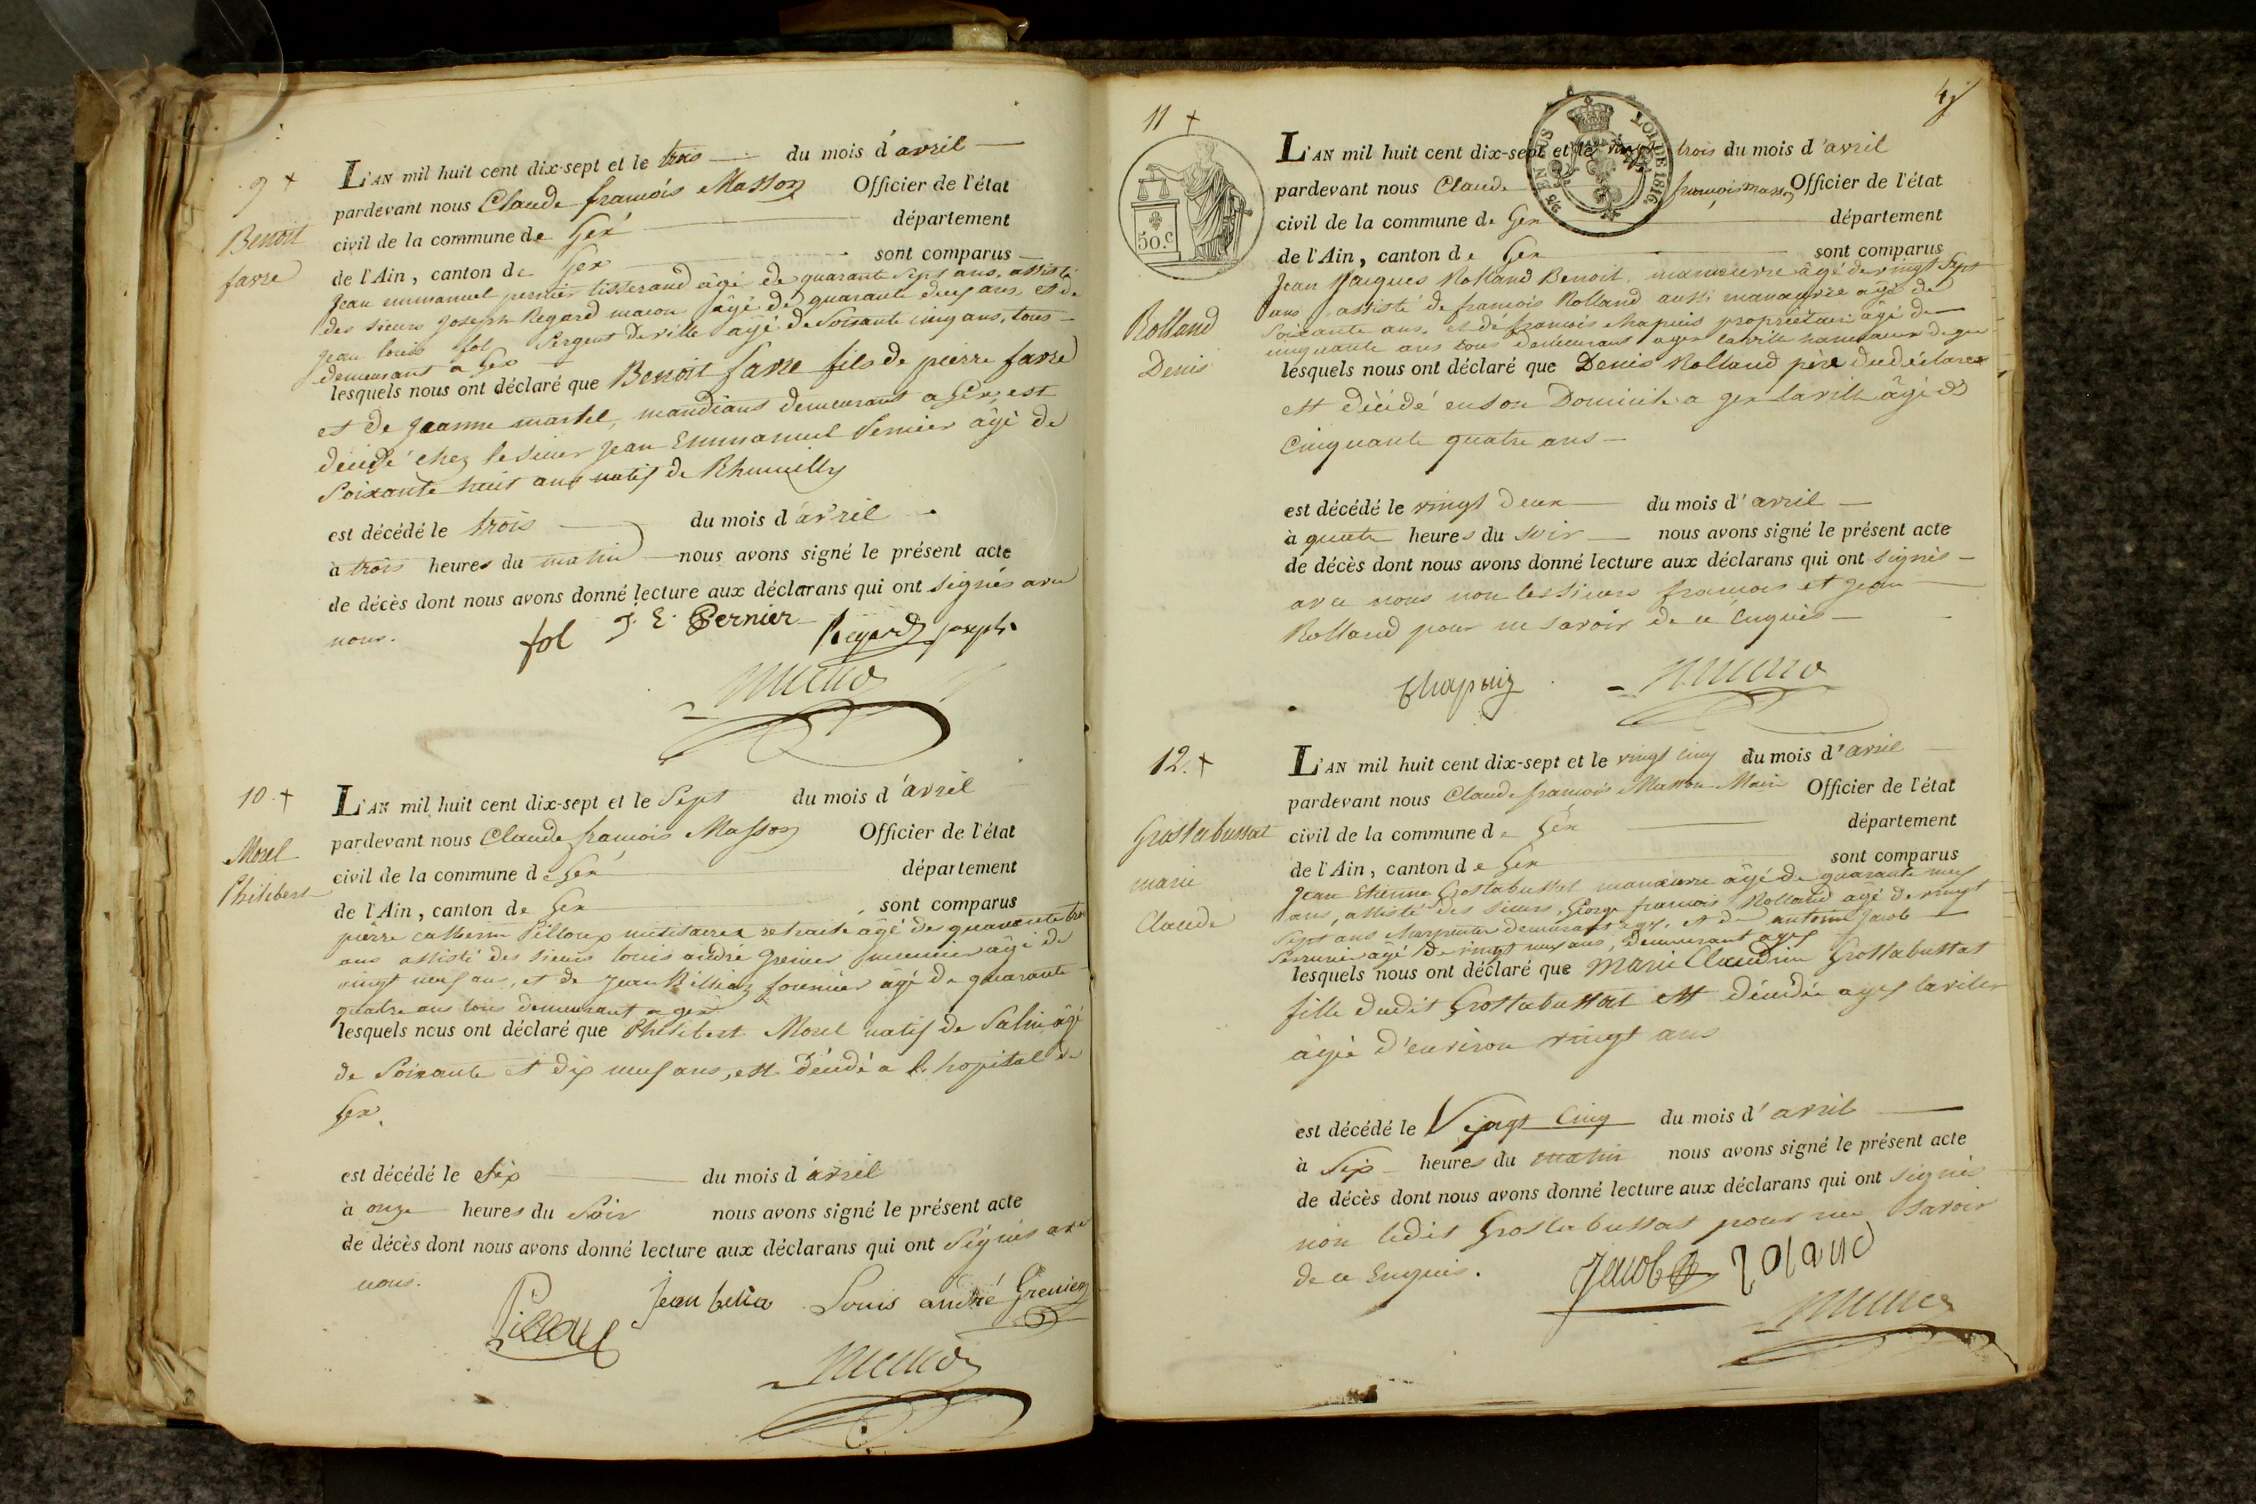 9 +
Benoit
favre
L'AN mil huit cent dix-sept et le trois du mois d'avril
pardevant nous Claude françois Masson Officier de l'état
civil de la commune de Gex département
de l'Ain, canton de Gex sont comparus
Jean emmanuel pernier tisserand âgé de quarante sept ans, assisté
des sieurs Joseph Regard macon âgé de quarante deux ans, et de
Jean louis fol Sergent de ville âgé de Soixante cinq ans, tous
demeurant a Gex
lesquels nous ont déclaré que Benoit favre fils de pierre favre
et de Jeanne martel, mandians demeurant a Gex, est
décédé chez le sieur Jean Emmanuel Pernier âgé de
Soixante huit ans natif de Rhumilly
est décédé le trois du mois d'avril
à trois heures du matin nous avons signé le présent acte
de décès dont nous avons donné lecture aux déclarans qui ont signés avec
nous.
fol J. E. Pernier Regard joseph
10. +
Morel
Philibert
L'AN mil huit cent dix-sept et le Sept du mois d'avril
pardevant nous Claude françois Masson Officier de l'état
civil de la commune de Gex département
de l'Ain, canton de Gex sont comparus
pierre catherin Pilloux militaire retraité âgé de quarante
ans assisté des sieurs louis andré Grenier âgé de
vingt neuf ans, et de Jean Billiaz fournier âgé de quarante
quatre ans tous demeurant a gex
lesquels nous ont déclaré que Philibert Morel natif de Salin âgé
de Soixante et dix neuf ans, est décédé a l'hopital de
Gex.
est décédé le Six du mois d'avril
à onze heures du Soir nous avons signé le présent acte
de décès dont nous avons donné lecture aux déclarans qui ont Signés avec
nous.
Pilloux Jean belia Louis andré Grenier
4
11 +
50.c
EN SUS
LOI DE 1816
Rolland
Denis
L'AN mil huit cent dix-sept et le vingt trois du mois d'avril
pardevant nous Claude françois masson Officier de l'état
civil de la commune de Gex département
de l'Ain, canton de Gex sont comparus
Jean Jacques Rolland Benoit manoeuvre âgé de vingt Sept
ans, assisté de françois Rolland aussi manoeuvre âgé de
Soixante ans, et de françois chapuis propriétaire âgé de
cinquante ans tous demeurant a gex la ville
lesquels nous ont déclaré que Denis Rolland père du déclarant
est décédé en son Domicile a gex la ville âgé de
Cinquante quatre ans
est décédé le vingt deux du mois d'avril
à quatre heures du soir nous avons signé le présent acte
de décès dont nous avons donné lecture aux déclarans qui ont signés
avec nous non les sieurs françois et Jean
Rolland pour ne savoir de ce Enquis
Chapuiz
12. +
Grostabussat
marie
Claude
L'AN mil huit cent dix-sept et le vingt cinq du mois d'avril
pardevant nous Claude françois Masson Maire Officier de l'état
civil de la commune de Gex département
de l'Ain, canton de Gex sont comparus
Jean Etienne Grostabussat manoeuvre âgé de quarante neuf
ans, assisté des sieurs George françois Rolland âgé de vingt
Sept ans charpentier demeurant a gex, et de antoine Jacob
Serrurier âgé de vingt neuf ans, Demeurant a gex
lesquels nous ont déclaré que Marie Claudine Grostabussat
fille dudit Grostabussat est décédée a gex la ville
âgée d'environ vingt ans
est décédé le Vingt Cinq du mois d'avril
à Six heures du matin nous avons signé le présent acte
de décès dont nous avons donné lecture aux déclarans qui ont signés
non ledit Grostabussat pour ne savoir
de ce Enquis.
Jacob Roland